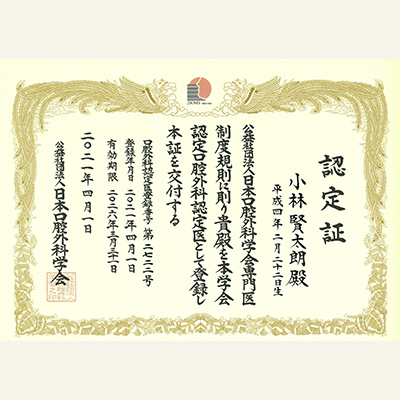 認定証
小林賢太朗殿
平成四年二月二十二日生
公益社団法人日本口腔外科学会専門医
制度規則に則り貴殿を本学会
認定口腔外科認定医として登録し
本証を交付する
口腔外科認定医登録番号 第二七二二号
登録年月日 二〇二一年四月一日
有効期限 二〇二六年三月三十一日
二〇二一年四月一日
公益社団法人日本口腔外科学会